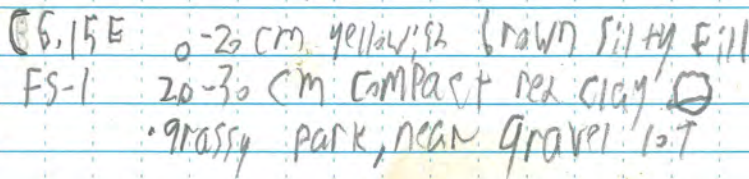 C6,15E 0-20 cm yellowish brown silty fill
FS-1 20-30 cm compact red clay
·grassy park, near gravel lot